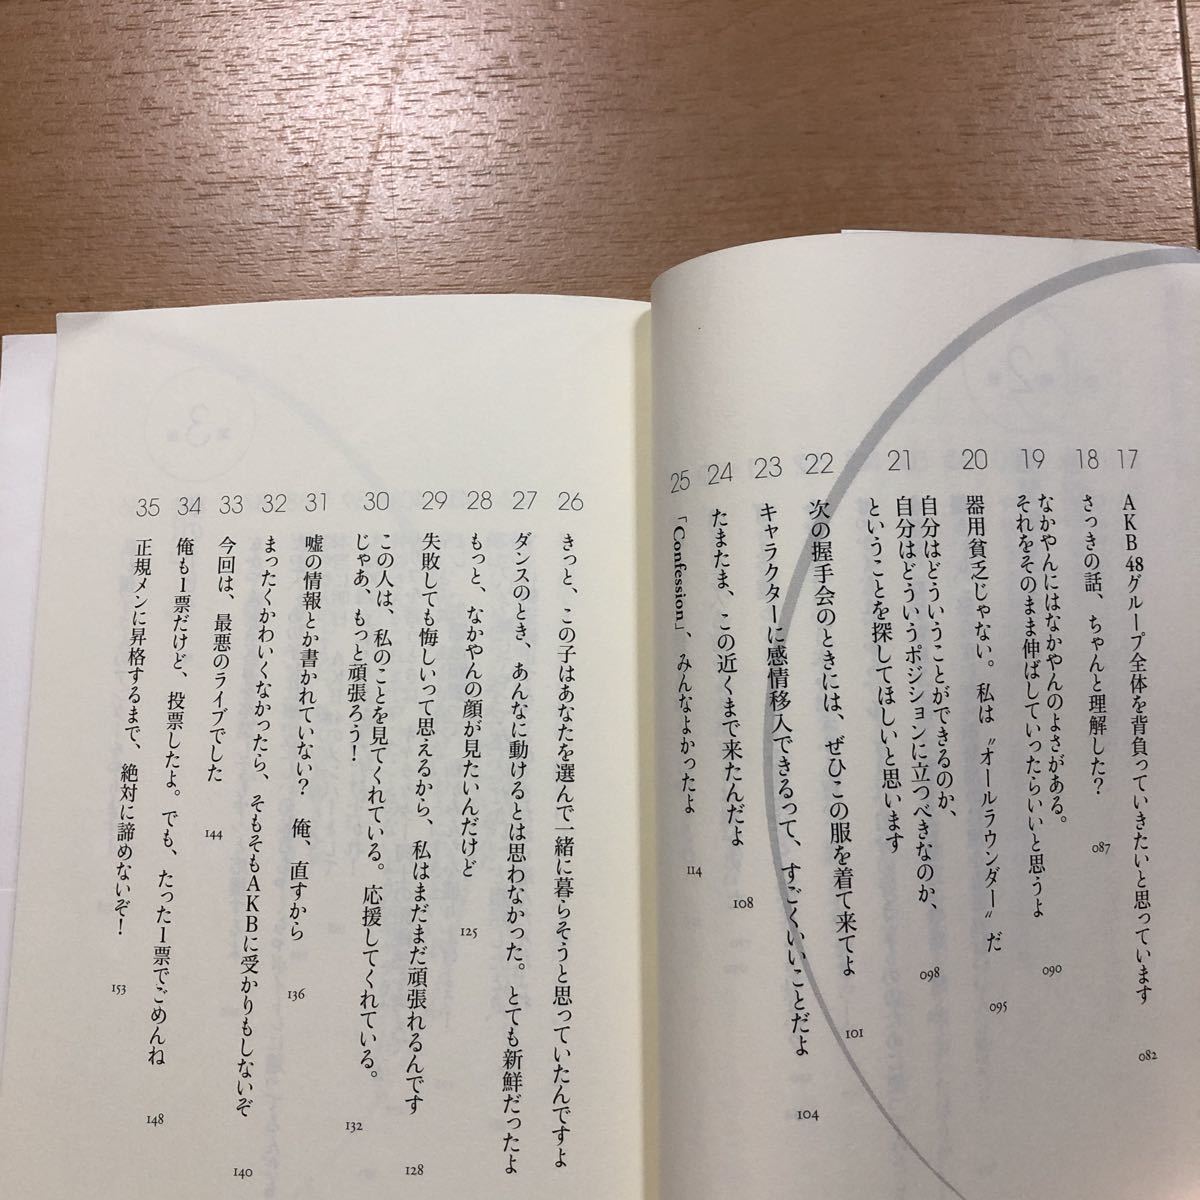 17
AKB48グループ全体を背負っていきたいと思っています
082
18
さっきの話、ちゃんと理解した?
087
19
なかやんにはなかやんのよさがある。
それをそのまま伸ばしていったらいいと思うよ
090
20
器用貧乏じゃない。私は〝オールラウンダー〟だ
095
21
自分はどういうことができるのか、
自分はどういうポジションに立つべきなのか、
ということを探してほしいと思います
098
22
次の握手会のときには、ぜひこの服を着て来てよ
101
23
キャラクターに感情移入できるって、すごくいいことだよ
104
24
たまたま、この近くまで来たんだよ
108
25
「Confession」、みんなよかったよ
114
26
きっと、この子はあなたを選んで一緒に暮らそうと思っていたんですよ
27
ダンスのとき、あんなに動けるとは思わなかった。とても新鮮だったよ
28
もっと、なかやんの顔が見たいんだけど
125
29
失敗しても悔しいって思えるから、私はまだまだ頑張れるんです
128
30
この人は、私のことを見てくれている。応援してくれている。
じゃあ、もっと頑張ろう!
132
31
嘘の情報とか書かれていない? 俺、直すから
136
32
まったくかわいくなかったら、そもそもAKBに受かりもしないぞ
140
33
今回は、最悪のライブでした
144
34
俺も1票だけど、投票したよ。でも、たった1票でごめんね
148
35
正規メンに昇格するまで、絶対に諦めないぞ!
153